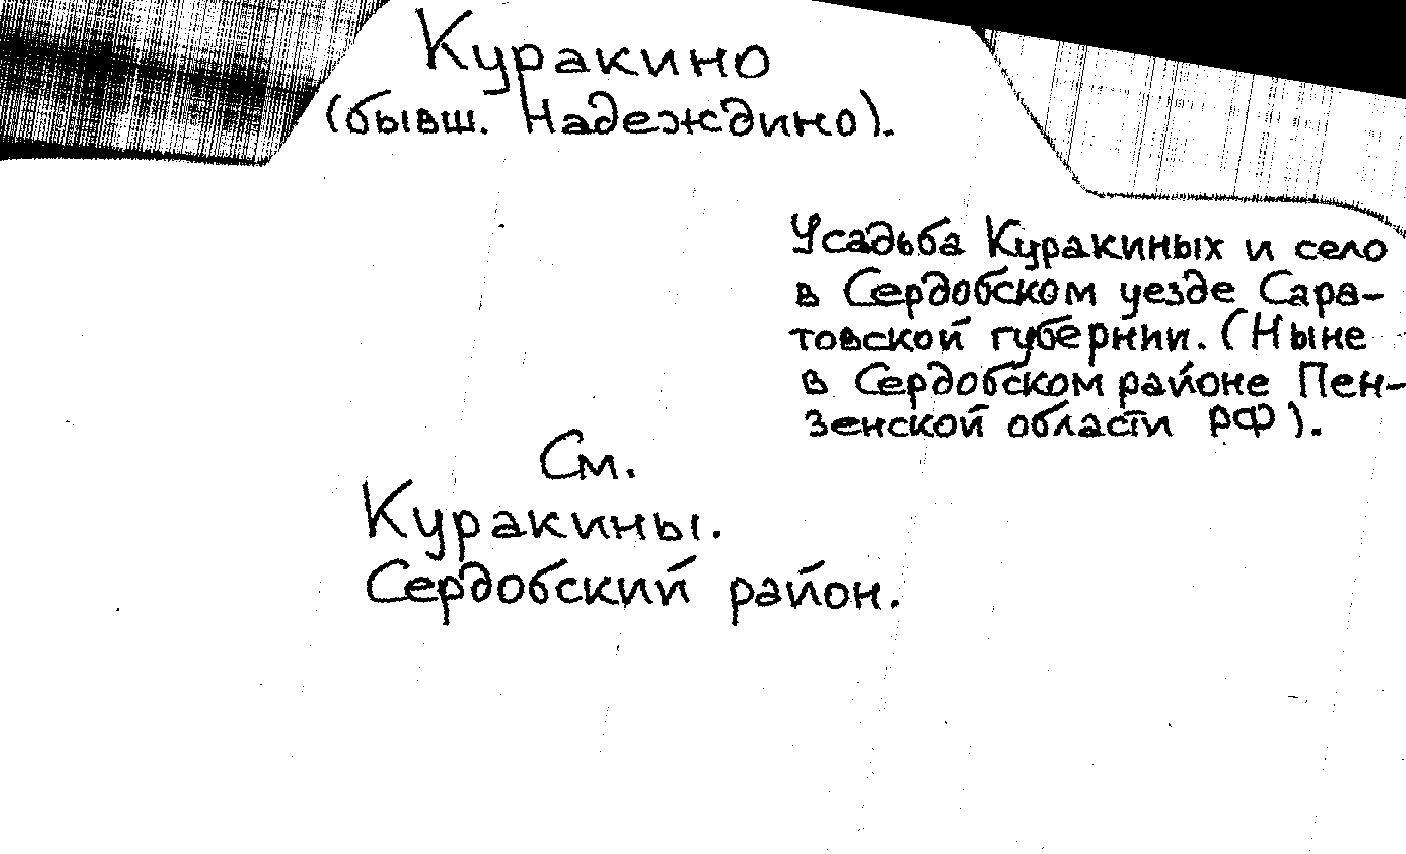 Куракино
(бывш. Надеждино).
Усадьба Куракиных и село
в Сердобском уезде Сара-
товской губернии. (Ныне
в Сердобском районе Пен-
зенской области РФ).
См.
Куракины.
Сердобский район.